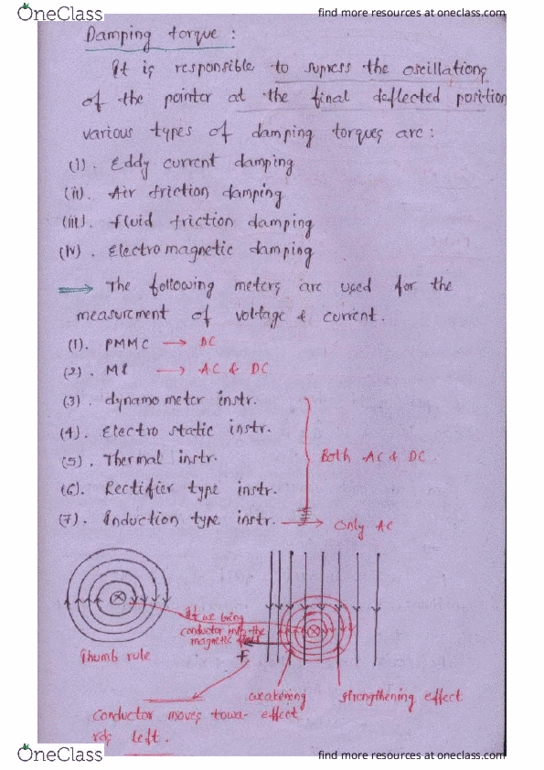 OneClass
find more resources at oneclass.com
find more resources at oneclass.com
Damping torque :
It is responsible to supress the oscillations
of the pointer at the final deflected position
various types of damping torques are :
(i). Eddy current damping
(ii). Air friction damping
(iii). fluid friction damping
(iv). Electro magnetic damping
The following meters are used for the
measurement of voltage & current.
(1). PMMC → DC
(2). MI → AC & DC
(3). dynamo meter instr.
(4). Electro static instr.
(5). Thermal instr.
Both AC & DC.
(6). Rectifier type instr.
(7). Induction type instr. → Only AC
If we bring
conductor into the
magnetic field
F
Thumb rule
weakening
effect
strengthening effect
Conductor moves towa-
rds left.
OneClass
find more resources at oneclass.com
find more resources at oneclass.com